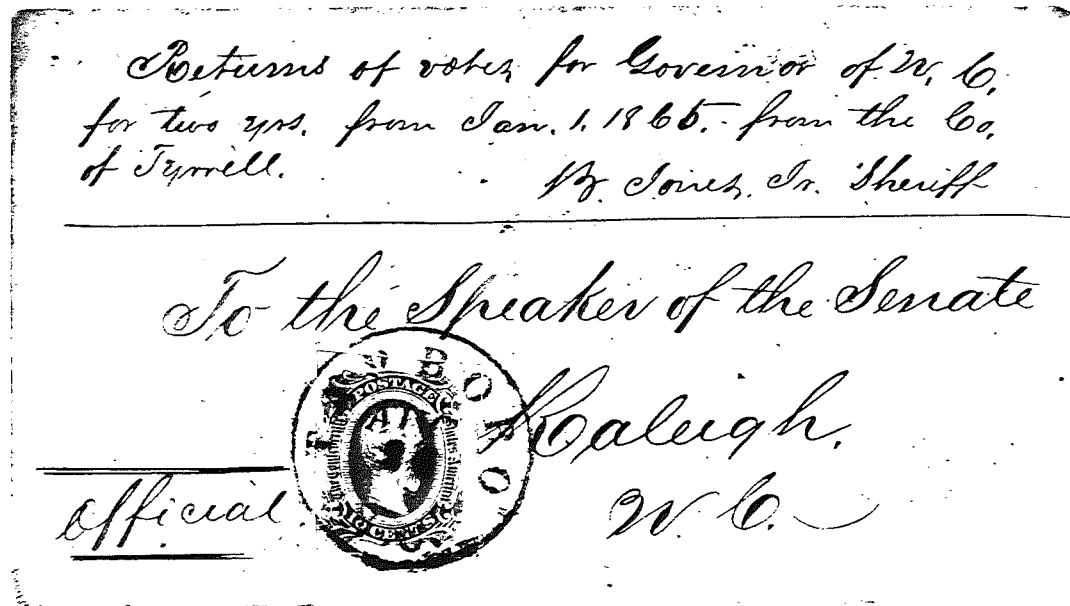 Returns of votes for Governor of N. C.
for two yrs. from Jan. 1. 1865. - from the Co.
of Tyrrell.
B. Jones, Jr. Sheriff
To the Speaker of the Senate
Raleigh,
N. C.
Official.
POSTAGE